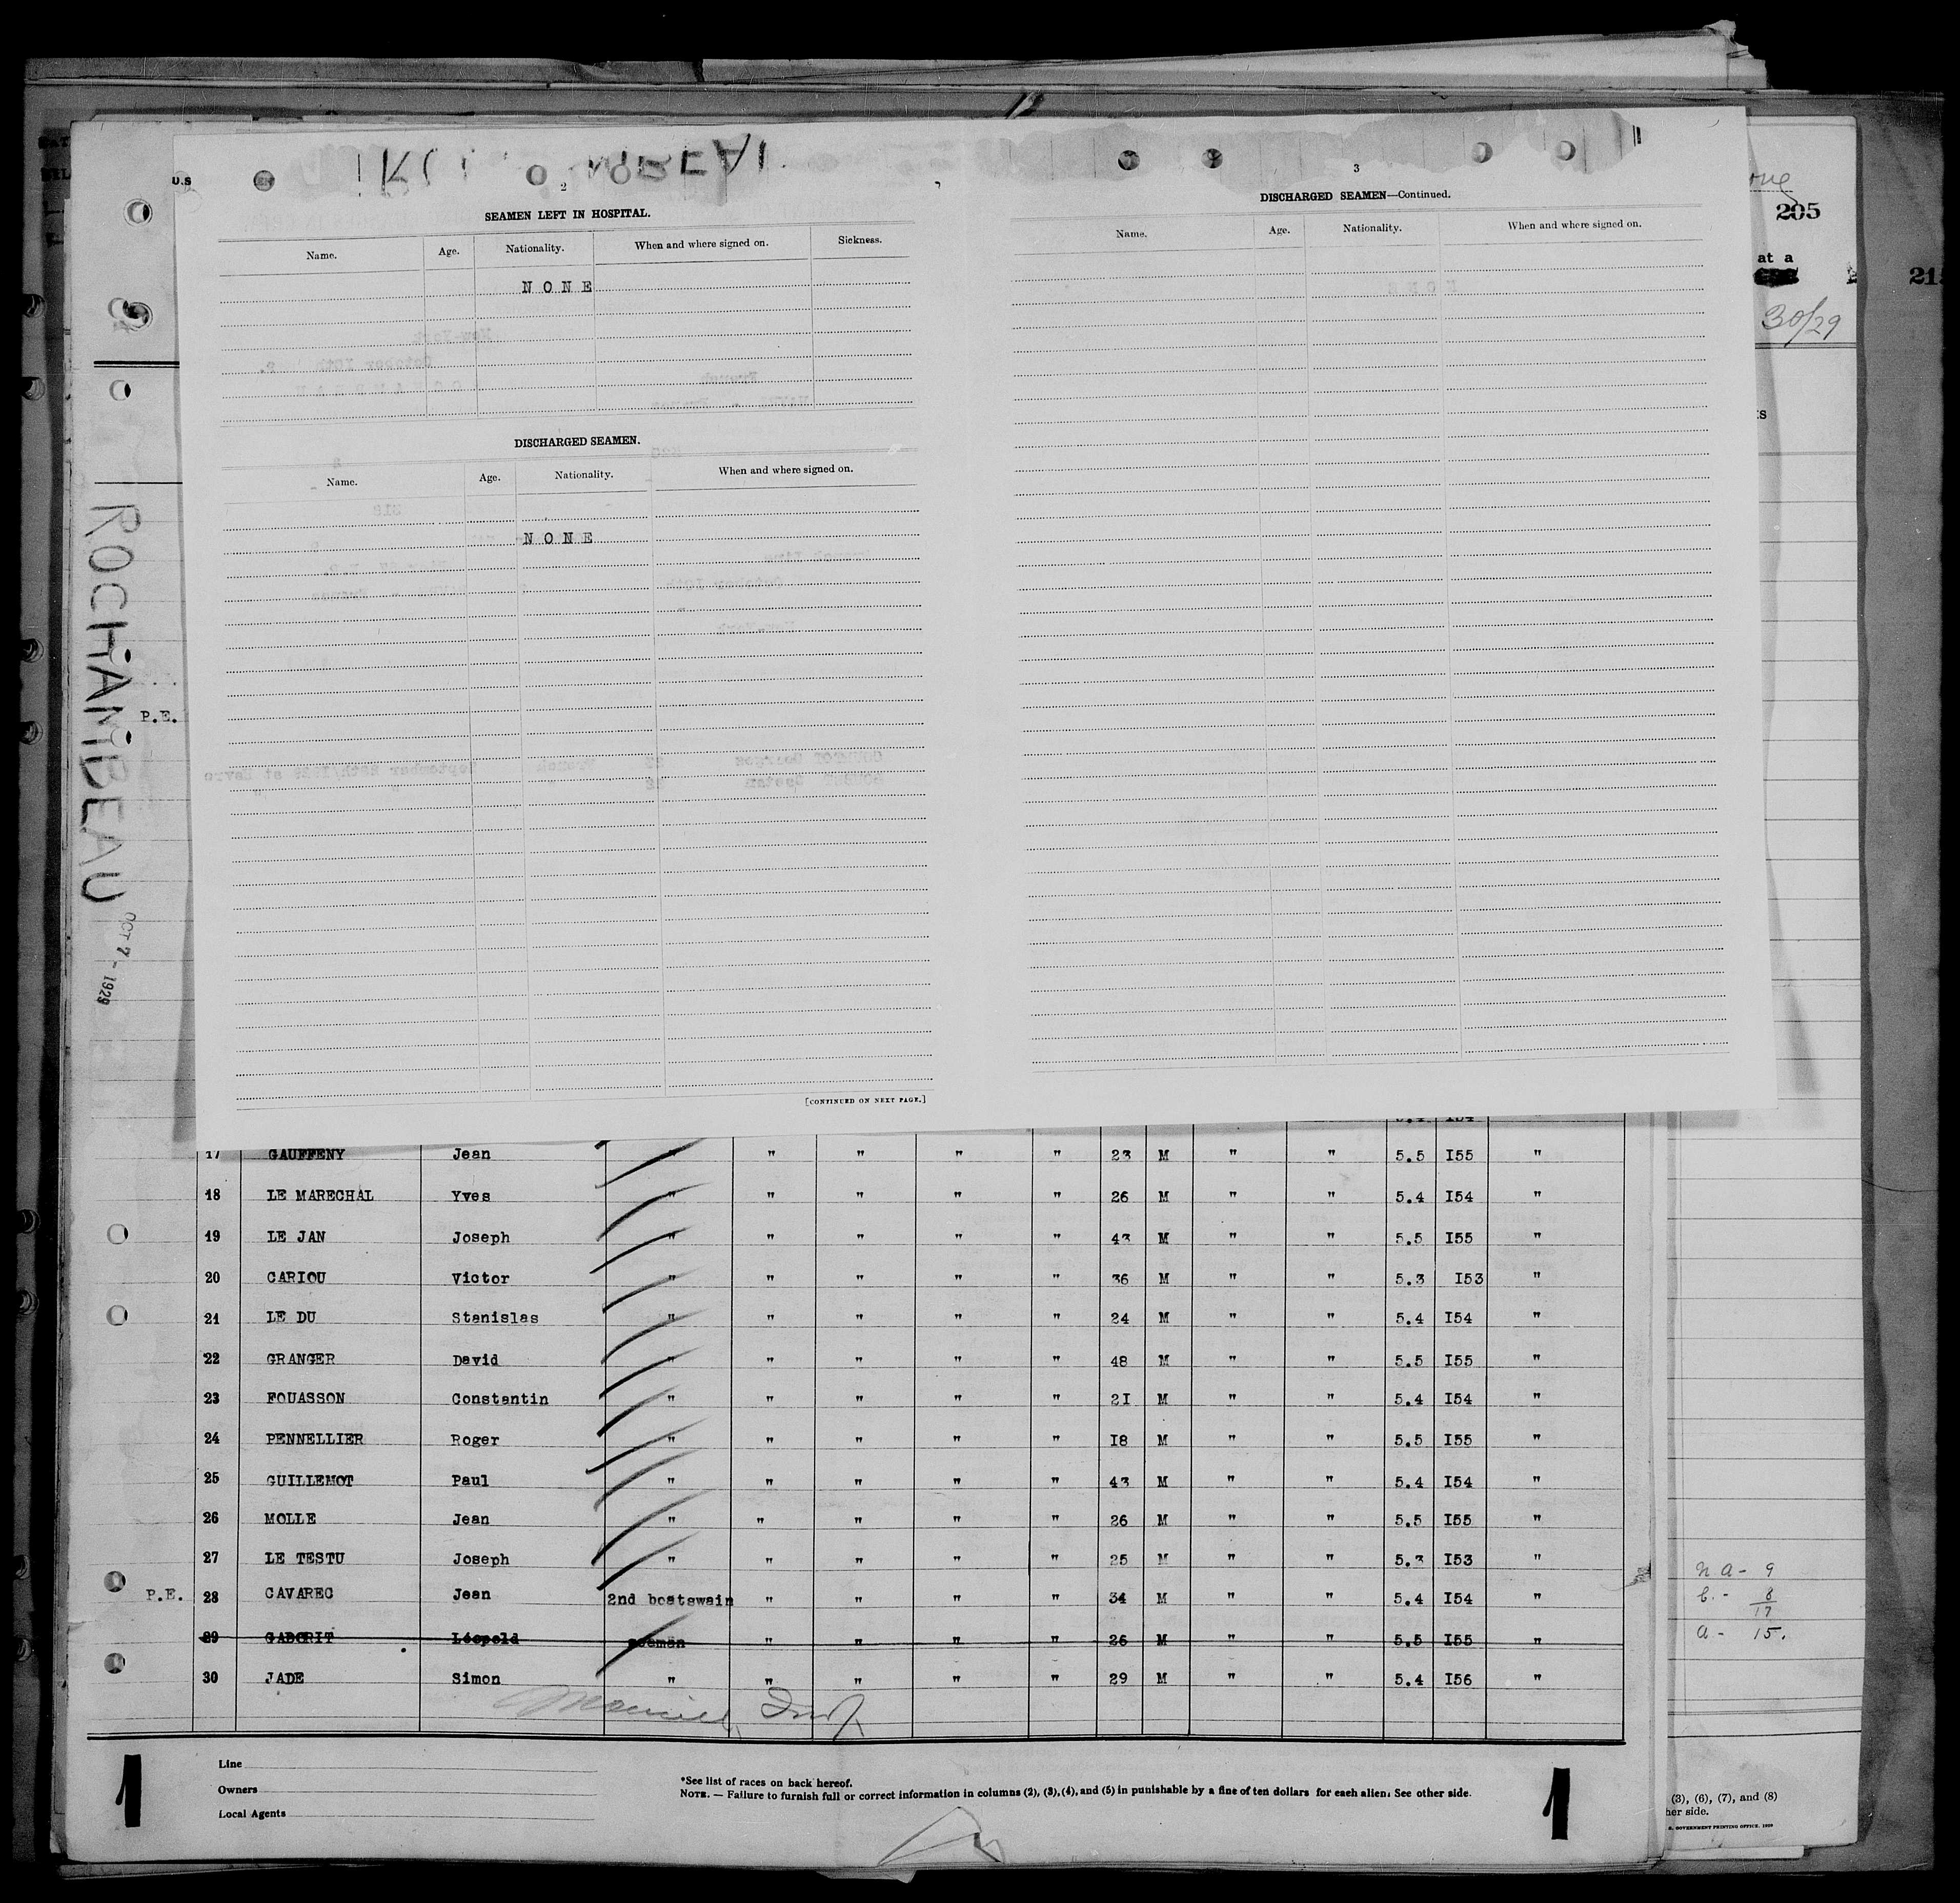 U.S
2
SEAMEN LEFT IN HOSPITAL.
Name. Age. Nationality. When and where signed on. Sickness.
NONE
DISCHARGED SEAMEN.
Name. Age. Nationality. When and where signed on.
NONE
[CONTINUED ON NEXT PAGE.]
3
DISCHARGED SEAMEN—Continued.
Name. Age. Nationality. When and where signed on.
205
at a
30/29
ROCHAMBEAU
OCT 7 - 1929
P.E.
17 GAUFFENY Jean " " " " " 23 M " " 5.5 I55 "
18 LE MARECHAL Yves " " " " " 26 M " " 5.4 I54 "
19 LE JAN Joseph " " " " " 43 M " " 5.5 I55 "
20 CARIOU Victor " " " " " 36 M " " 5.3 I53 "
21 LE DU Stanislas " " " " " 24 M " " 5.4 I54 "
22 GRANGER David " " " " " 48 M " " 5.5 I55 "
23 FOUASSON Constantin " " " " " 2I M " " 5.4 I54 "
24 PENNELLIER Roger " " " " " I8 M " " 5.5 I55 "
25 GUILLEMOT Paul " " " " " 43 M " " 5.4 I54 "
26 MOLLE Jean " " " " " 26 M " " 5.5 I55 "
27 LE TESTU Joseph " " " " " 25 M " " 5.3 I53 "
P.E. 28 CAVAREC Jean 2nd boatswain " " " " 34 M " " 5.4 I54 "
29 GABORIT Léopold seaman " " " " 26 M " " 5.5 I55 "
30 JADE Simon " " " " " 29 M " " 5.4 I56 "
n a - 9
b. - 8
17
a - 15.
1
Line
Owners
Local Agents
*See list of races on back hereof.
NOTE. — Failure to furnish full or correct information in columns (2), (3), (4), and (5) in punishable by a fine of ten dollars for each alien. See other side.
1
(3), (6), (7), and (8)
her side.
GOVERNMENT PRINTING OFFICE. 1929